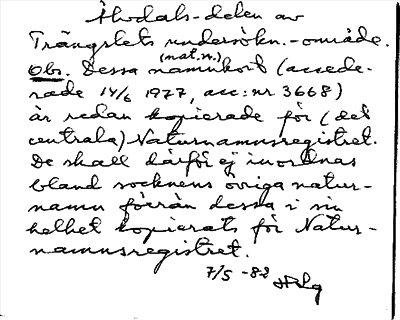 Älvdals-delen av
Trängslets undersökn.-område.
Obs. Dessa (nat.n.) namnkort (accede-
rade 14/6 1977, acc: nr 3668)
är redan kopierade för (det
centrala) Naturnamnsregistret.
De skall därför ej inordnas
bland socknens övriga natur-
namn förrän dessa i sin
helhet kopierats för Natur-
namnsregistret.
7/5 -82